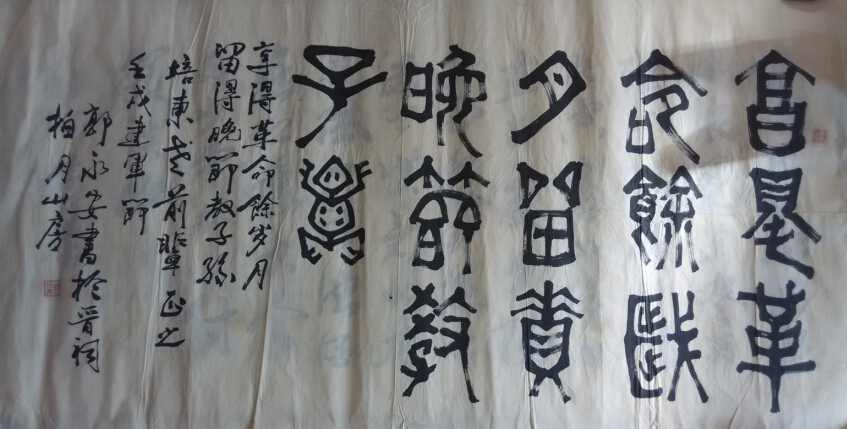 享得革
命餘歲
月留得
晚節教
子孫
享得革命餘岁月
留得晚節教子孫
培東老前輩正之
壬戌建軍節
郭永安書於晋祠
柏月山房